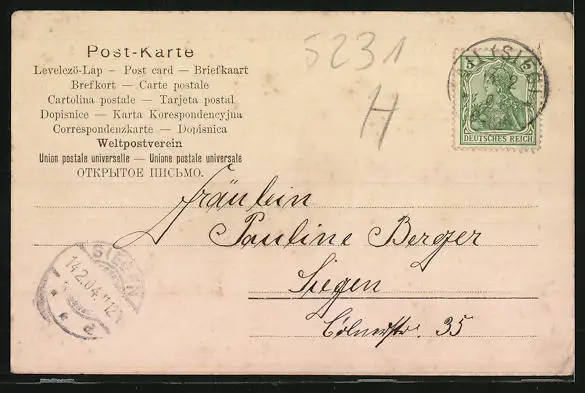 Post-Karte
Levelező-Lap — Post card — Briefkaart
Brefkort — Carte postale
Cartolina postale — Tarjeta postal
Dopisnice — Karta Korespondencyjna
Correspondenzkarte — Dopisnica
Weltpostverein
Union postale universelle — Unione postale universale
ОТКРЫТОЕ ПИСЬМО.
5231
H
5
5
DEUTSCHES REICH
Fräulein
Pauline Berger
Siegen
Cölnerstr. 35
SIEGEN
14.2.04.